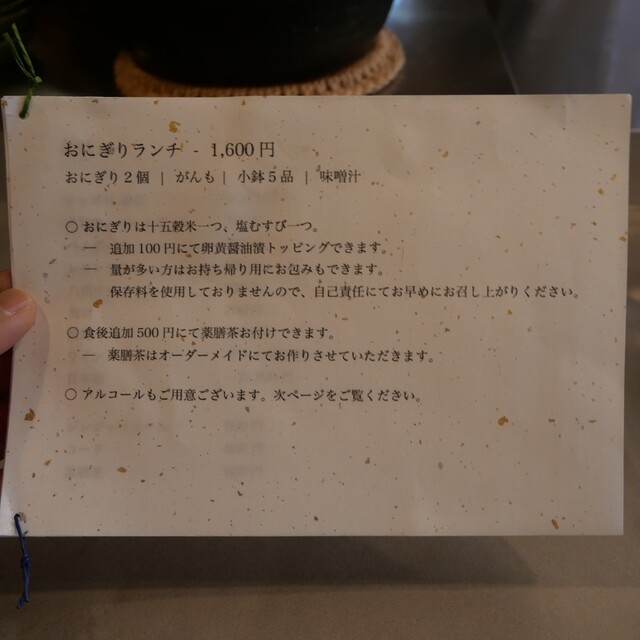 おにぎりランチ - 1,600円
おにぎり2個 | がんも | 小鉢5品 | 味噌汁
○ おにぎりは十五穀米一つ、塩むすび一つ。
― 追加100円にて卵黄醤油漬トッピングできます。
― 量が多い方はお持ち帰り用にお包みもできます。
保存料を使用しておりませんので、自己責任にてお早めにお召し上がりください。
○ 食後追加500円にて薬膳茶お付けできます。
― 薬膳茶はオーダーメイドにてお作りさせていただきます。
○ アルコールもご用意ございます。次ページをご覧ください。